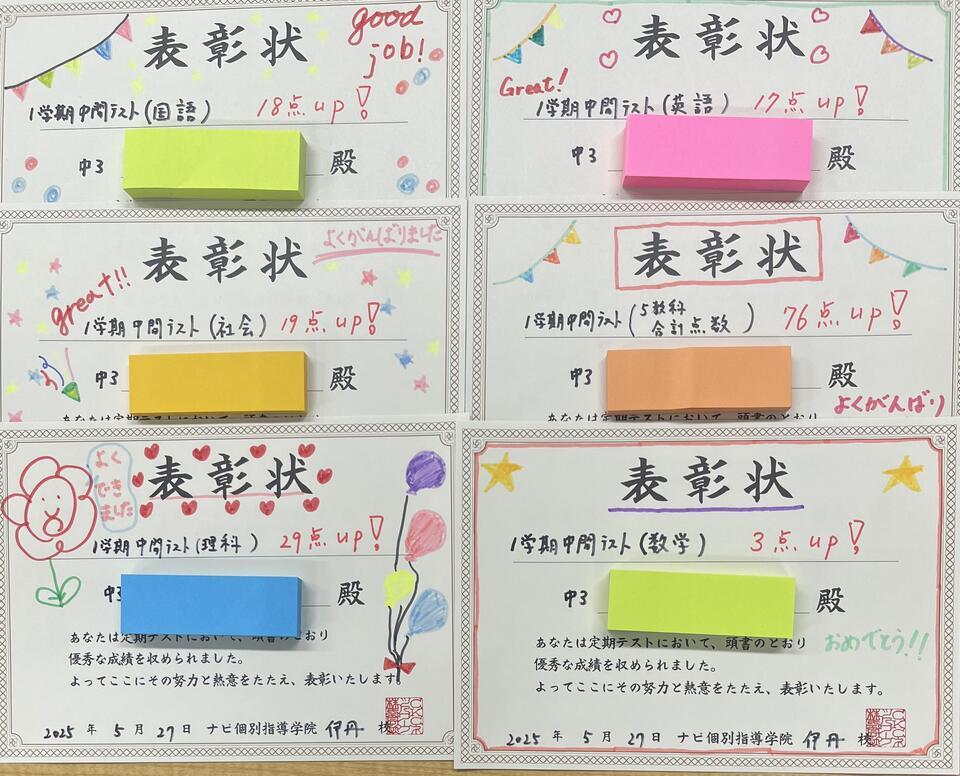 表彰状
good
job!
1学期中間テスト(国語) 18点up!
中3 殿
表彰状
Great!
1学期中間テスト(英語) 17点up!
中3 殿
表彰状
よくがんばりました
great!!
1学期中間テスト(社会) 19点up!
中3 殿
表彰状
1学期中間テスト(5教科合計点数) 76点up!
中3 殿
よくがんばり
よく
でき
ました
表彰状
1学期中間テスト(理科) 29点up!
中3 殿
あなたは定期テストにおいて、頭書のとおり
優秀な成績を収められました。
よってここにその努力と熱意をたたえ、表彰いたします。
2025年5月27日 ナビ個別指導学院 伊丹 校
表彰状
1学期中間テスト(数学) 3点up!
中3 殿
あなたは定期テストにおいて、頭書のとおり
おめでとう!!
優秀な成績を収められました。
よってここにその努力と熱意をたたえ、表彰いたします。
2025年5月27日 ナビ個別指導学院 伊丹 校